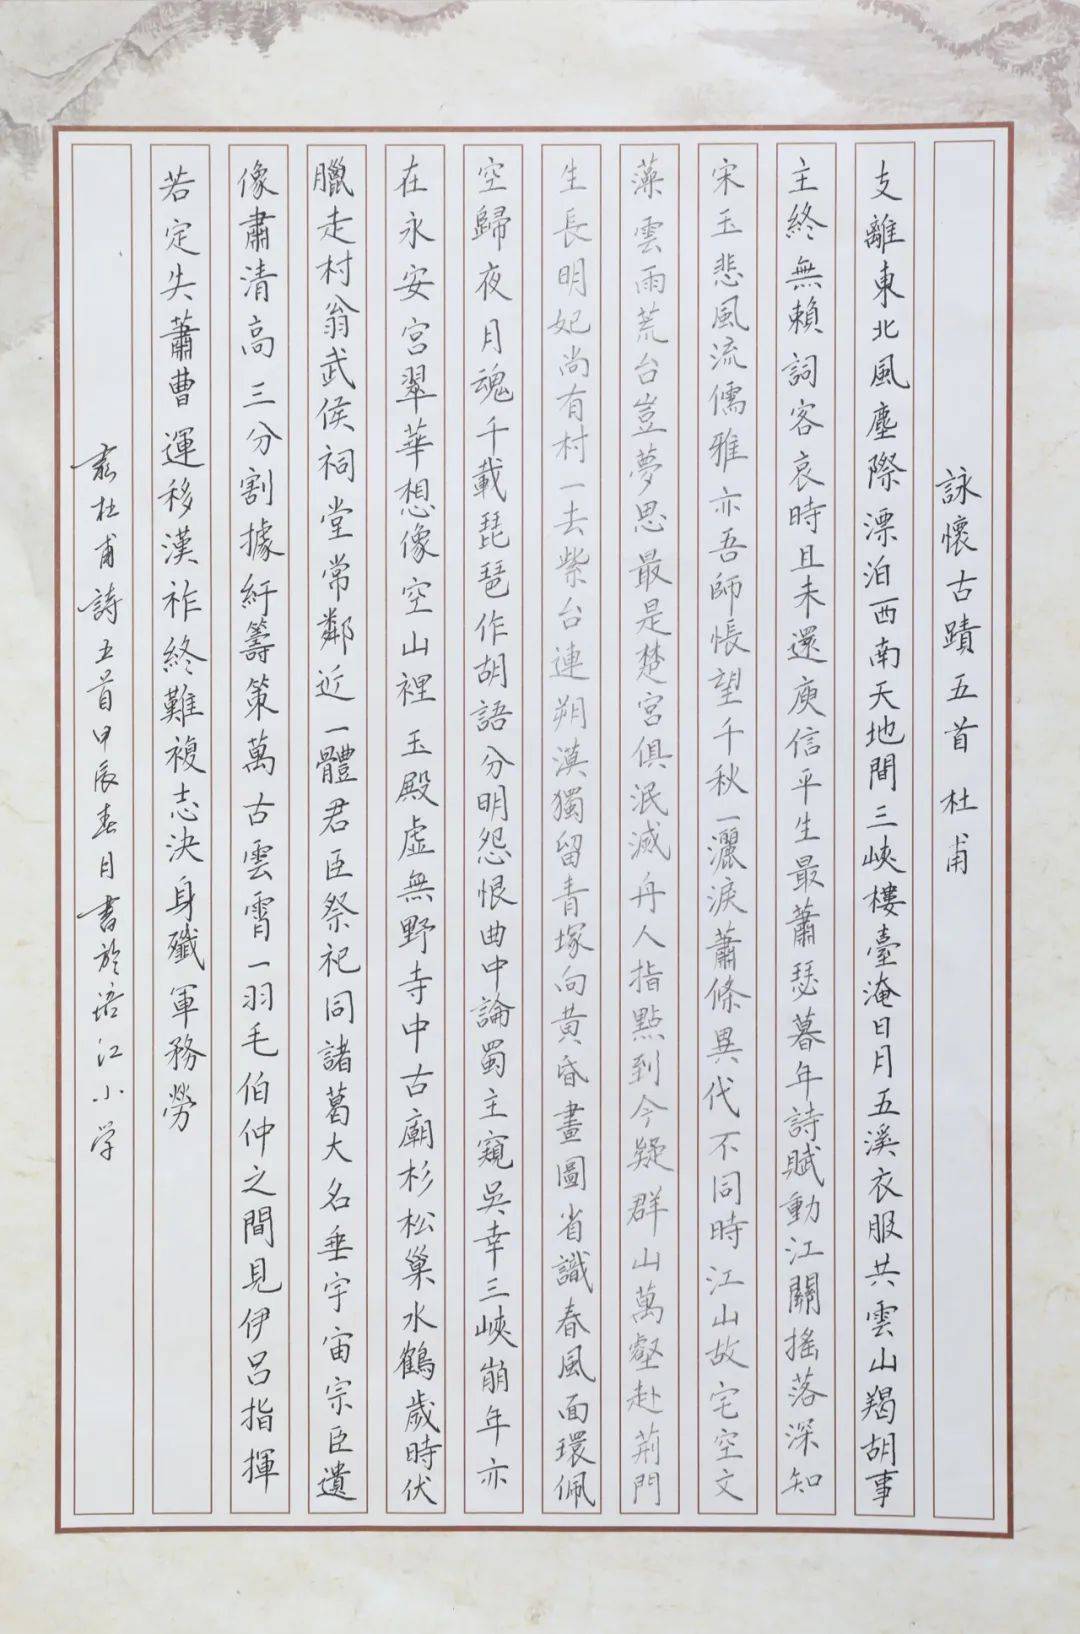 詠懷古蹟五首 杜甫
支離東北風塵際漂泊西南天地間三峽樓臺淹日月五溪衣服共雲山羯胡事
主終無賴詞客哀時且未還庾信平生最蕭瑟暮年詩賦動江關搖落深知
宋玉悲風流儒雅亦吾師悵望千秋一灑淚蕭條異代不同時江山故宅空文
藻雲雨荒台豈夢思最是楚宮俱泯滅舟人指點到今疑群山萬壑赴荊門
生長明妃尚有村一去紫台連朔漠獨留青塚向黃昏畫圖省識春風面環佩
空歸夜月魂千載琵琶作胡語分明怨恨曲中論蜀主窺吳幸三峽崩年亦
在永安宮翠華想像空山裡玉殿虛無野寺中古廟杉松巢水鶴歲時伏
臘走村翁武侯祠堂常鄰近一體君臣祭祀同諸葛大名垂宇宙宗臣遺
像肅清高三分割據紆籌策萬古雲霄一羽毛伯仲之間見伊呂指揮
若定失蕭曹運移漢祚終難複志決身殲軍務勞
杜甫詩五首甲辰春月書於培江小学